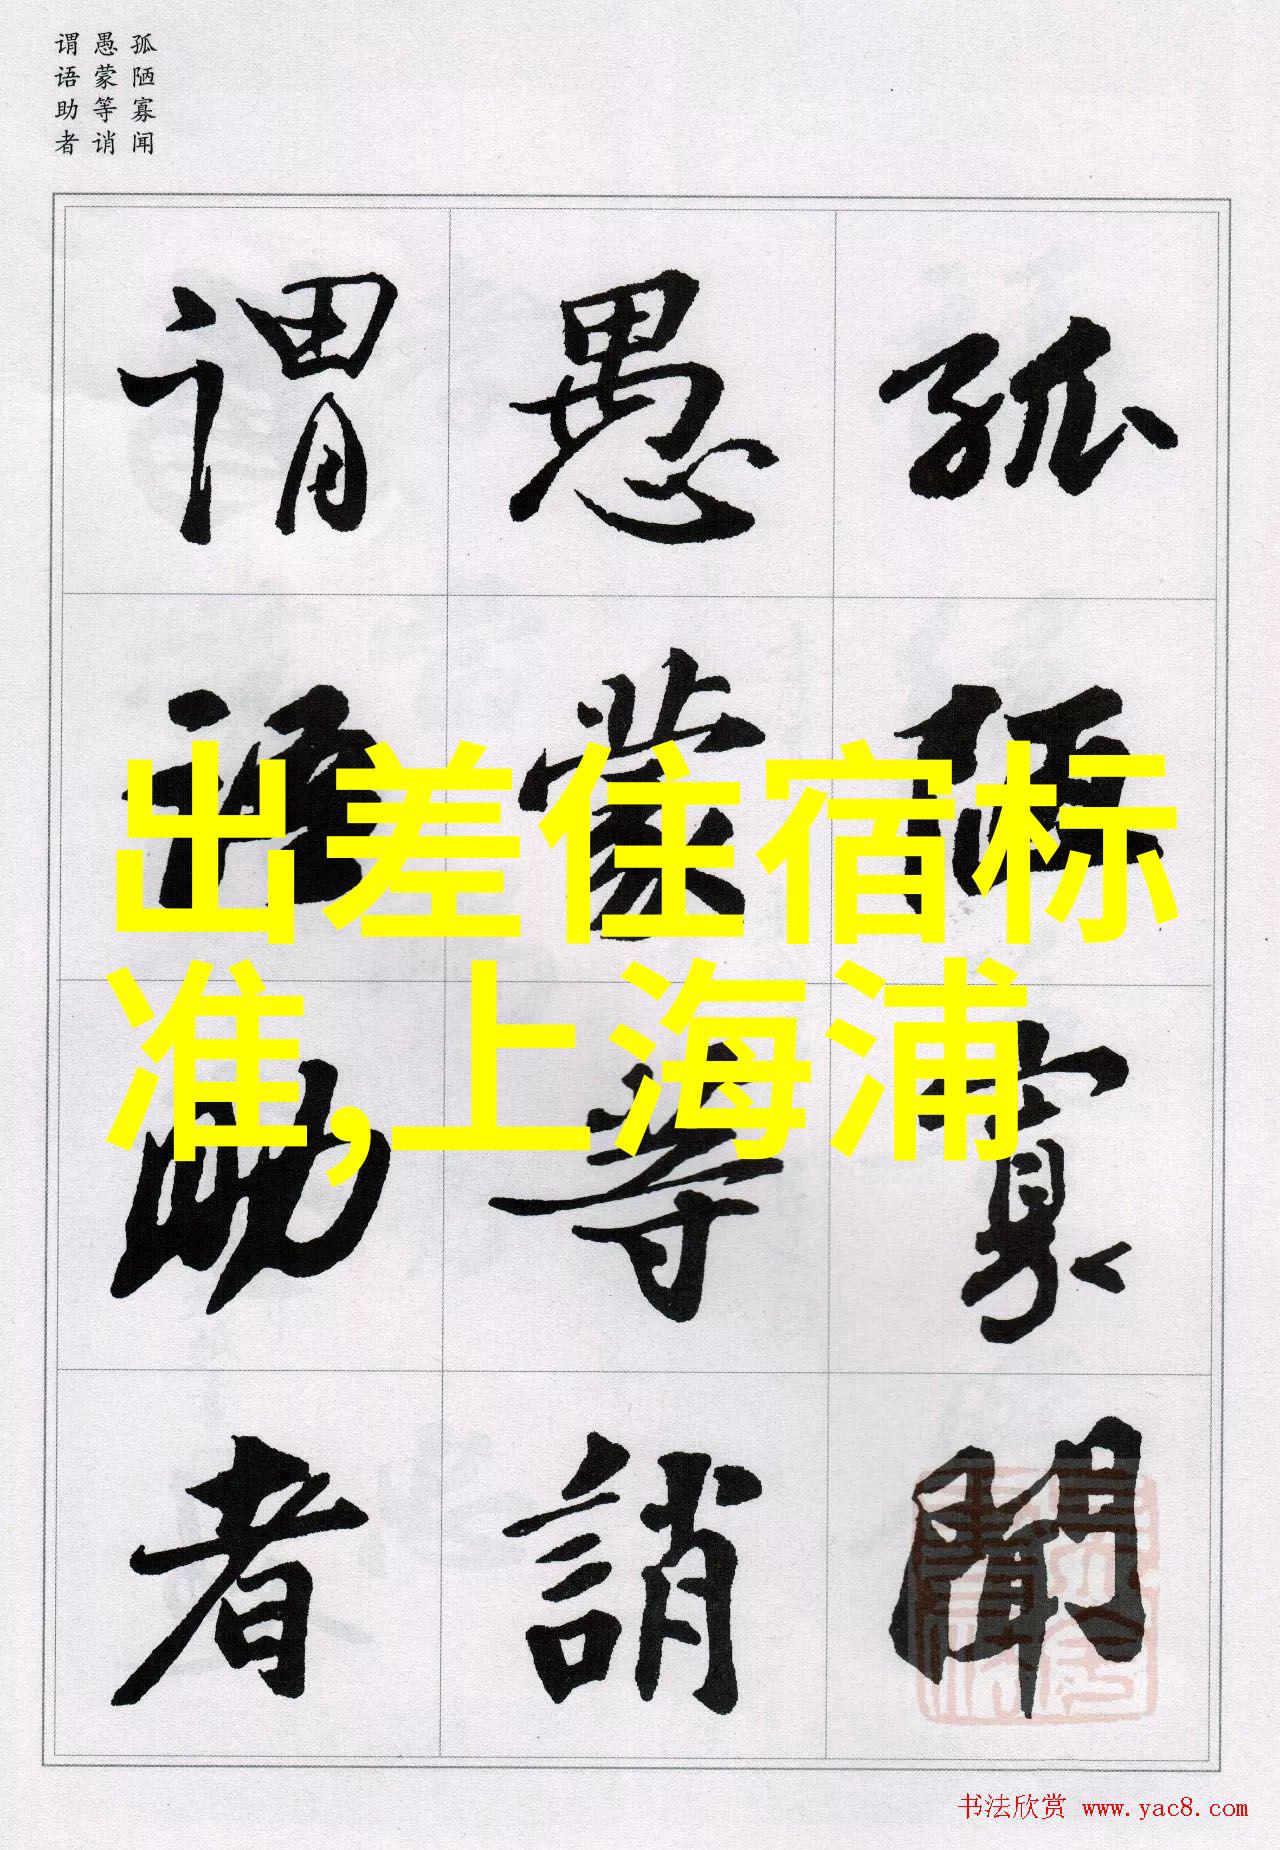 孤陋寡闻
愚蒙等诮
谓语助者
孤陋寡聞
愚蒙等誚
谓语助者
出差住宿标
准,上海浦
书法欣赏 www.yac8.com